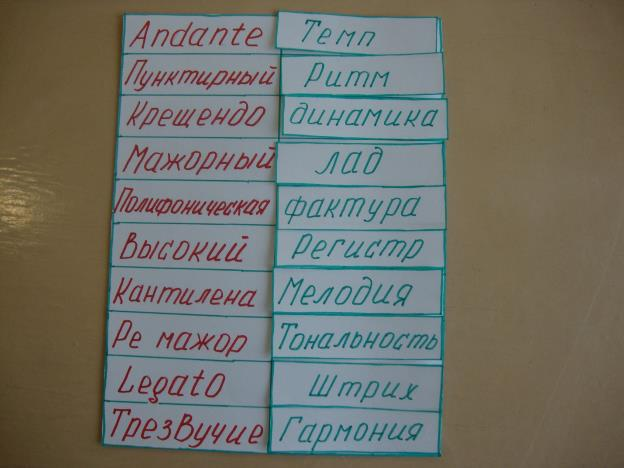 Andante Темп
Пунктирный Ритм
Крещендо динамика
Мажорный лад
Полифоническая фактура
Высокий Регистр
Кантилена Мелодия
Ре мажор Тональность
Legato Штрих
ТрезВучие Гармония